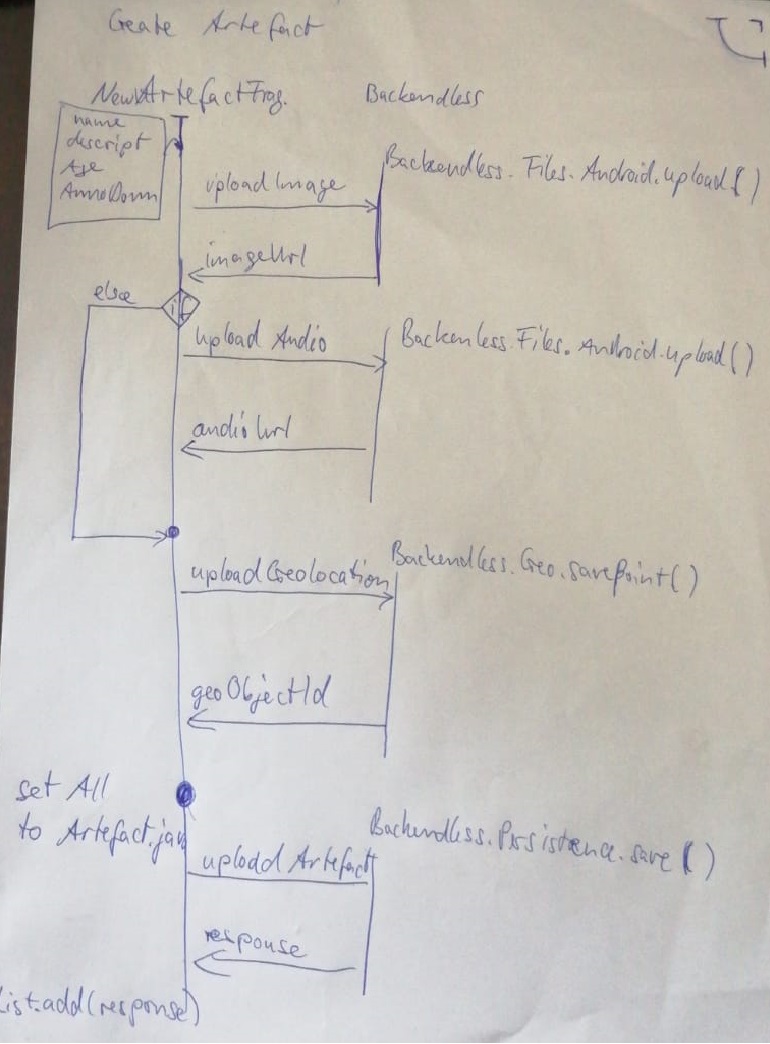 Create Artefact
NewArtefactFrag. Backendless
name
descript
Age
AnnoDomn
Backendless.Files.Android.upload()
uploadImage
imageUrl
else
if
upload Audio
Backenless.Files.Android.upload()
audioUrl
uploadGeolocation
Backendless.Geo.savePoint()
geoObjectId
set All
to Artefact.jav
Backendless.Prsistence.save()
upload Artefact
response
List.add(response)